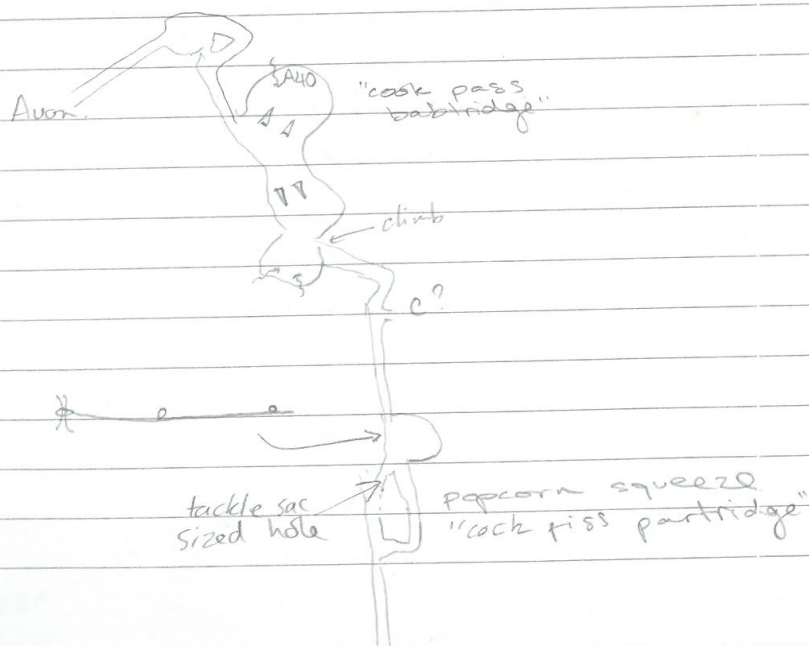 A40
"cook pass
babtridge"
Avon
climb
c?
tackle sac
sized hole
popcorn squeeze
"cock piss partridge"